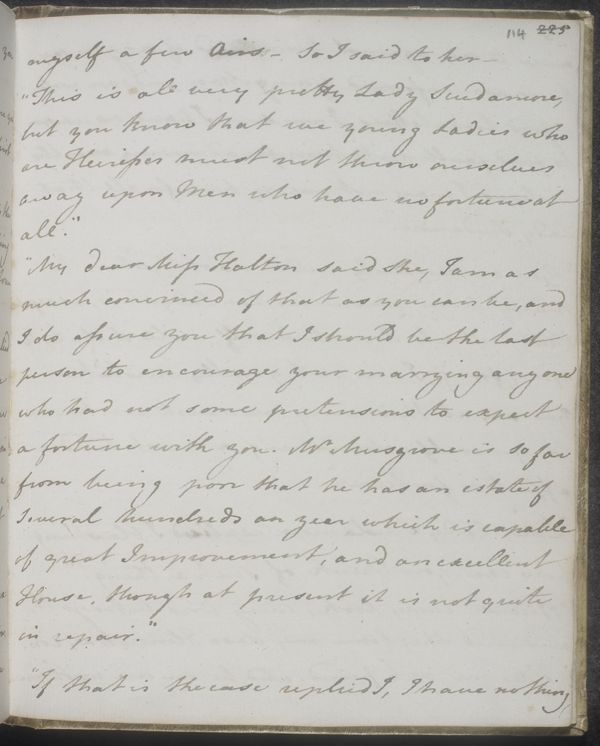 114 225
myself a few Airs_ So I said to her_
"This is all very pretty Lady Scudamore,
but you know that we young Ladies who
are Heiresses must not throw ourselves
away upon Men who have no fortune at
all."
"My dear Miss Halton said she, I am as
much convinced of that as you can be, and
I do assure you that I should be the last
person to encourage your marrying anyone
who had not some pretensions to expect
a fortune with you. Mr Musgrove is so far
from being poor that he has an estate of
Several hundreds an year which is capable
of great Improvement, and an excellent
House, though at present it is not quite
in repair."
"If that is the case replied I, I have nothing